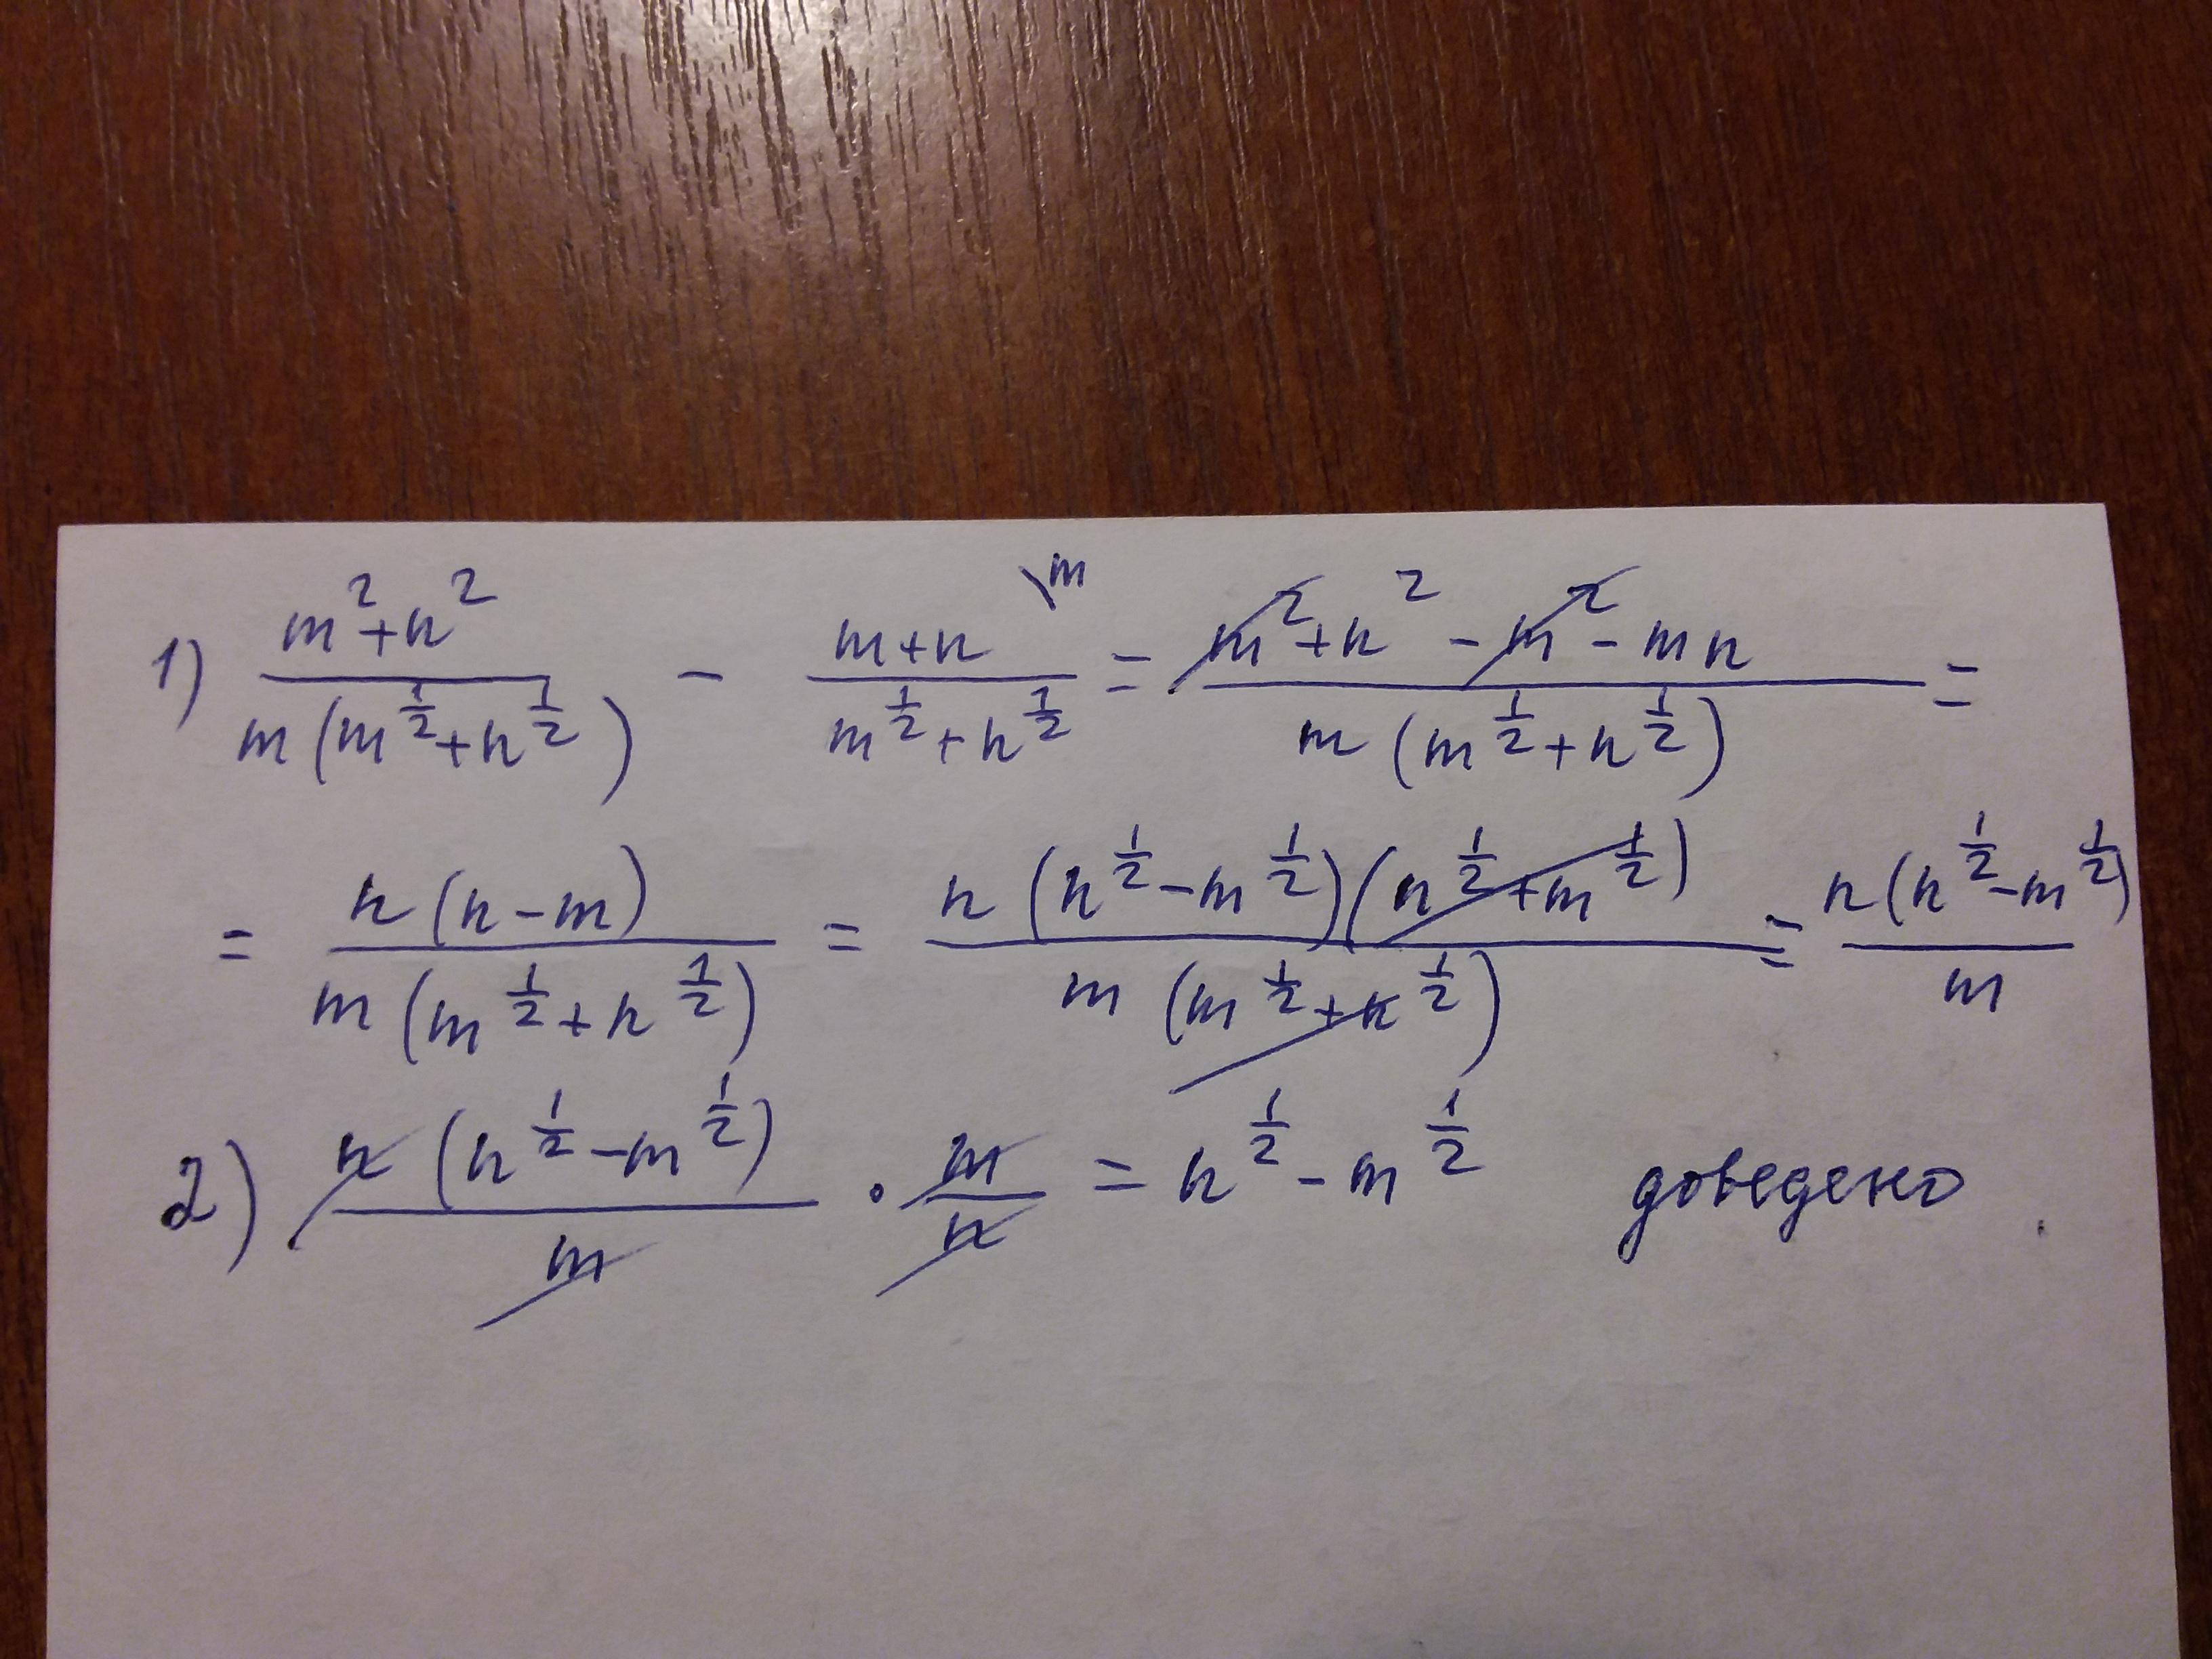 1) \frac{m^2+n^2}{m(m^{\frac{1}{2}}+n^{\frac{1}{2}})} - \frac{m+n}{m^{\frac{1}{2}}+n^{\frac{1}{2}}}^{\backslash m} = \frac{m^2+n^2-m^2-mn}{m(m^{\frac{1}{2}}+n^{\frac{1}{2}})} =
= \frac{n(n-m)}{m(m^{\frac{1}{2}}+n^{\frac{1}{2}})} = \frac{n(n^{\frac{1}{2}}-m^{\frac{1}{2}})(n^{\frac{1}{2}}+m^{\frac{1}{2}})}{m(m^{\frac{1}{2}}+n^{\frac{1}{2}})} = \frac{n(n^{\frac{1}{2}}-m^{\frac{1}{2}})}{m}
2) \frac{n(n^{\frac{1}{2}}-m^{\frac{1}{2}})}{m} \cdot \frac{m}{n} = n^{\frac{1}{2}}-m^{\frac{1}{2}} доведено